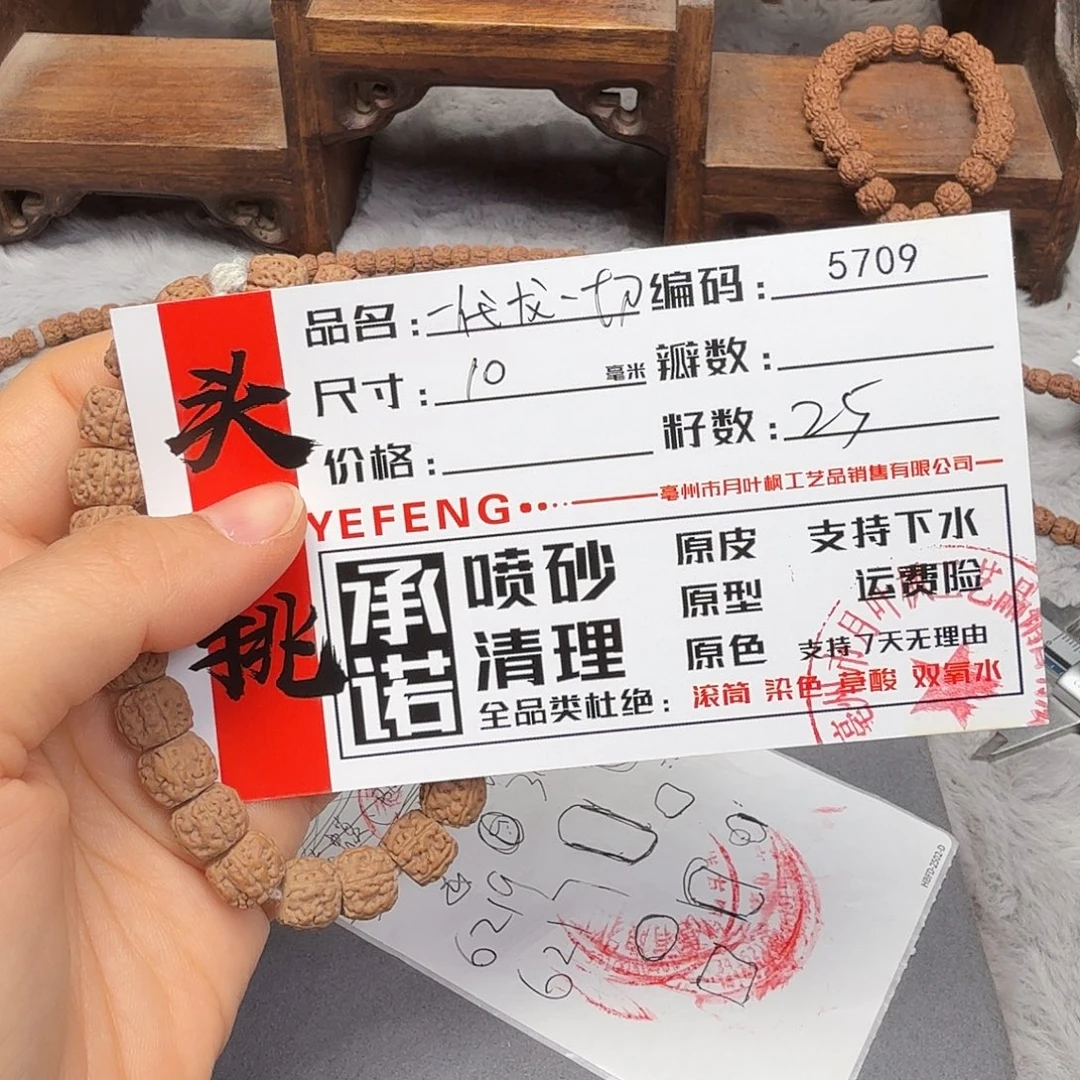 头挑
品名：一代龙一切 编码：5709
尺寸：10 毫米 瓣数：
价格： 籽数：25
YEFENG 亳州市月叶枫工艺品销售有限公司
承诺
喷砂 原皮 支持下水
清理 原型 运费险
原色 支持7天无理由
全品类杜绝：滚筒 染色 草酸 双氧水
6219
HBFD-2502-D